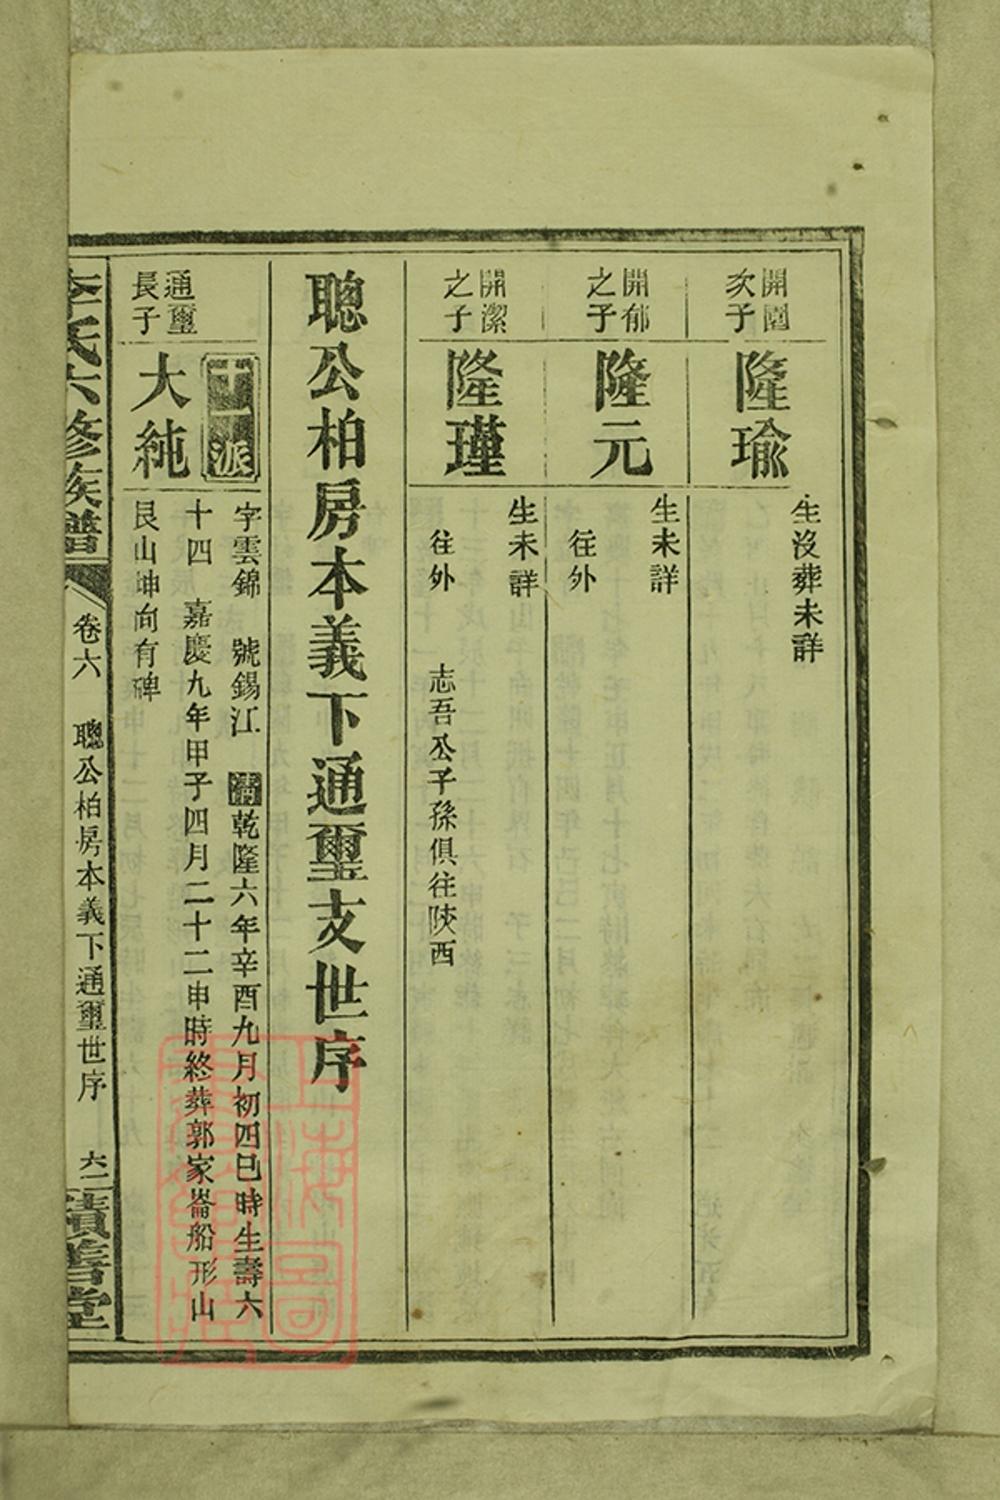 開圖
次子
隆瑜
生沒葬未詳
開郁
之子
隆元
生未詳
往外
開潔
之子
隆瑾
生未詳
往外　志吾公子孫俱往陝西
聰公柏房本義下通璽支世序
通璽
長子
十一派
大純
字雲錦　號錫江　清乾隆六年辛酉九月初四巳時生壽六
十四　嘉慶九年甲子四月二十二申時終葬郭家崙船形山
艮山坤向有碑
李氏六修族譜
卷六　聰公柏房本義下通璽世序　六二
積善堂